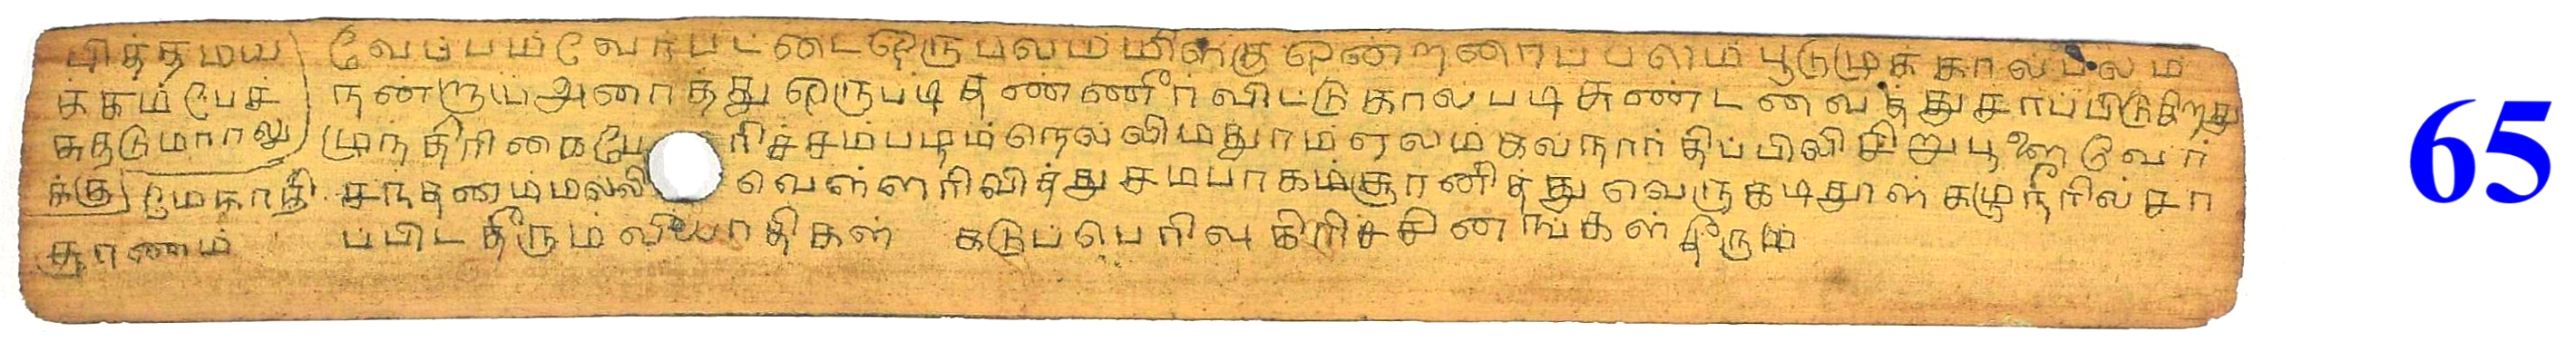 பித்தமய வேப்பம் வேர்பட்டை ஒரு பலம் மிளகு ஒன்றரைப் பலம் பூடு முக்கால் பலம்
க்கம் பேச் நன்றாய் அரைத்து ஒருபடி தண்ணீர் விட்டு கால்படி சுண்ட வைத்து சாப்பிடுகிறது
சுதடுமாறலு முந்திரிகை பே ரிச்சம்படிம் நெல்லி மதுரம் ஏலம் கல்நார் திப்பிலி சிறுபூளை வேர்
க்கு மேகாதி சந்தனம் மல்லி வெள்ளரிவித்து சமபாகம் சூரணித்து வெருகடி தூள் கழுநீரில் சா
சூரணம் ப்பிட தீரும் வியாதிகள் கடுப்பெரிவு கிரிச்சினங்கள் தீரும்
65